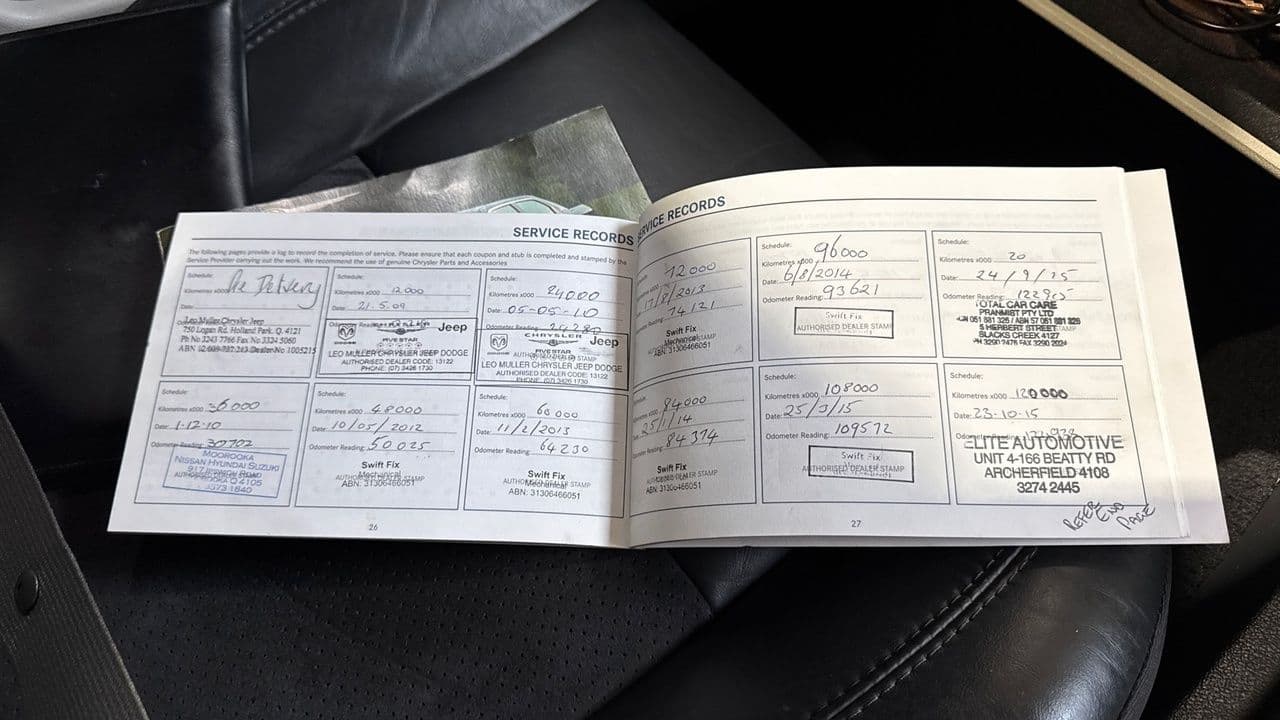 SERVICE RECORDS
The following pages provide a log to record the completion of service. Please ensure that each coupon and stub is completed and stamped by the
Service Provider carrying out the work. We recommend the use of genuine Chrysler Parts and Accessories
Schedule:
Kilometres x000 Pre Delivery
Date:
Leo Muller Chrysler Jeep
750 Logan Rd. Holland Park. Q. 4121
Ph No 3243 7766 Fax No 3324 5060
ABN 12 609 787 263 Dealer No 1005215
Schedule:
Kilometres x000 12 000
Date: 21.5.09
Jeep
FIVE STAR
LEO MULLER CHRYSLER JEEP DODGE
AUTHORISED DEALER CODE: 13122
PHONE: (07) 3426 1730
Schedule:
Kilometres x000 24000
Date: 05-05-10
Odometer Reading: 24280
CHRYSLER
Jeep
FIVE STAR
LEO MULLER CHRYSLER JEEP DODGE
AUTHORISED DEALER CODE: 13122
PHONE: (07) 3426 1730
Schedule:
Kilometres x000 36000
Date: 1-12-10
Odometer Reading: 30702
MOOROOKA
NISSAN HYUNDAI SUZUKI
ROAD
Q 4105
3373 1640
Schedule:
Kilometres x000 48000
Date: 10/05/2012
Odometer Reading: 50025
Swift Fix
Mechanical
AUTHORISED DEALER STAMP
ABN: 31306466051
Schedule:
Kilometres x000 60 000
Date: 11/2/2013
Odometer Reading: 64230
Swift Fix
Mechanical
AUTHORISED DEALER STAMP
ABN: 31306466051
26
SERVICE RECORDS
72000
17/8/2013
74121
Swift Fix
Mechanical
ABN: 31306466051
Schedule:
Kilometres x000 96000
Date: 6/8/2014
Odometer Reading: 93621
Swift Fix
AUTHORISED DEALER STAMP
Schedule:
Kilometres x000 20
Date: 24/9/15
Odometer Reading:
TOTAL CAR CARE
PRANMIST PTY LTD
HERBERT STREET
CREEK 4127
Kilometres x000 84000
Date: 25/1/14
84374
Swift Fix
ABN: 31306466051
Schedule:
Kilometres x000 108000
Date: 25/3/15
Odometer Reading: 109572
Swift Fix
AUTHORISED DEALER STAMP
Schedule:
Kilometres x000 120000
Date: 23-10-15
ELITE AUTOMOTIVE
UNIT 4-166 BEATTY RD
ARCHERFIELD 4108
3274 2445
27
REFER
END
PAGE